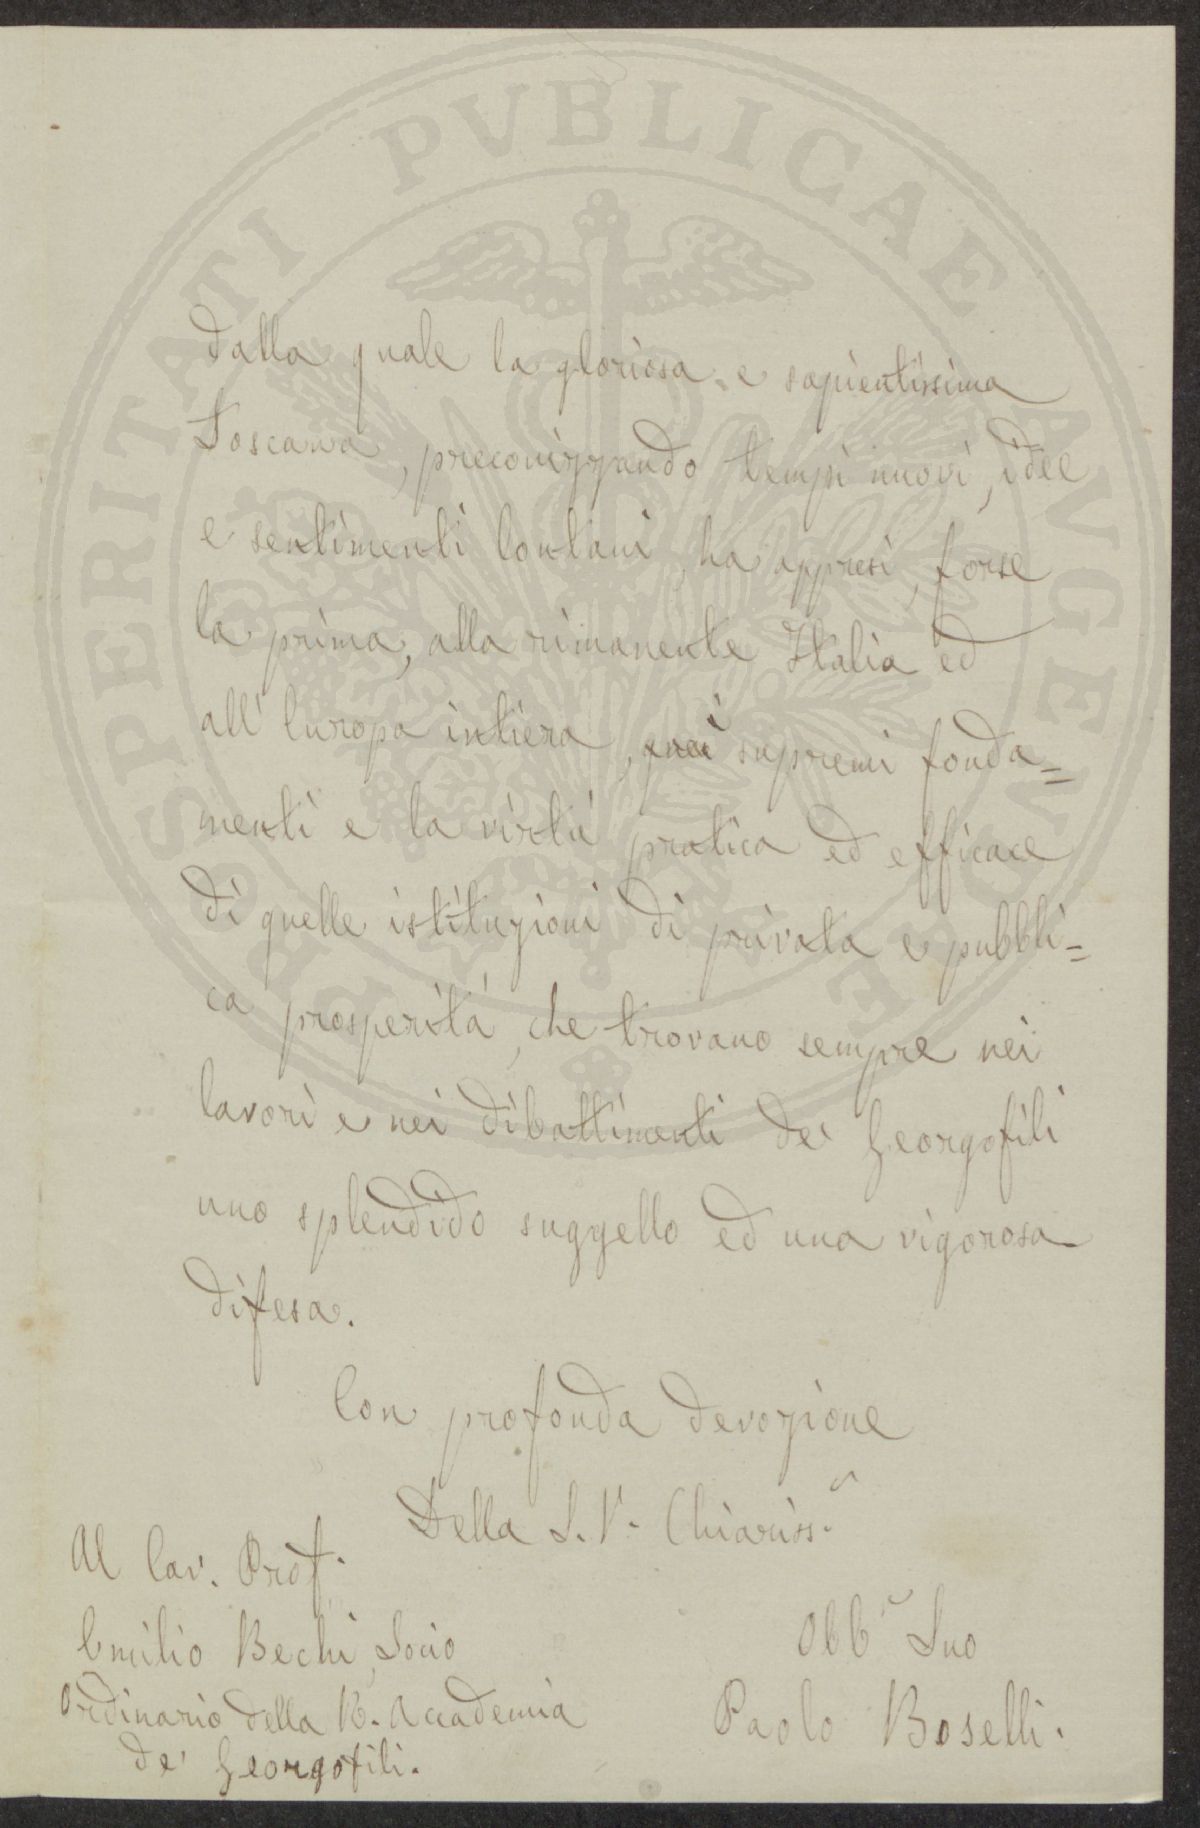 PROSPERITATI PVBLICAE AVGENDAE
dalla quale la gloriosa e sapientissima
Toscana, preconizzando tempi nuovi, idee
e sentimenti lontani, ha appresi, forse
la prima, alla rimanente Italia ed
all' Europa intiera, i supremi fonda=
menti e la virtù pratica ed efficace
di quelle istituzioni di privata e pubbli=
ca prosperità, che trovano sempre nei
lavori e nei dibattimenti de' Georgofili
uno splendido suggello ed una vigorosa
difesa.
Con profonda devozione
Della S. V. Chiariss.
Al Cav. Prof.
Emilio Bechi, Socio
Ordinario della R. Accademia
de' Georgofili.
Obb Suo
Paolo Boselli.